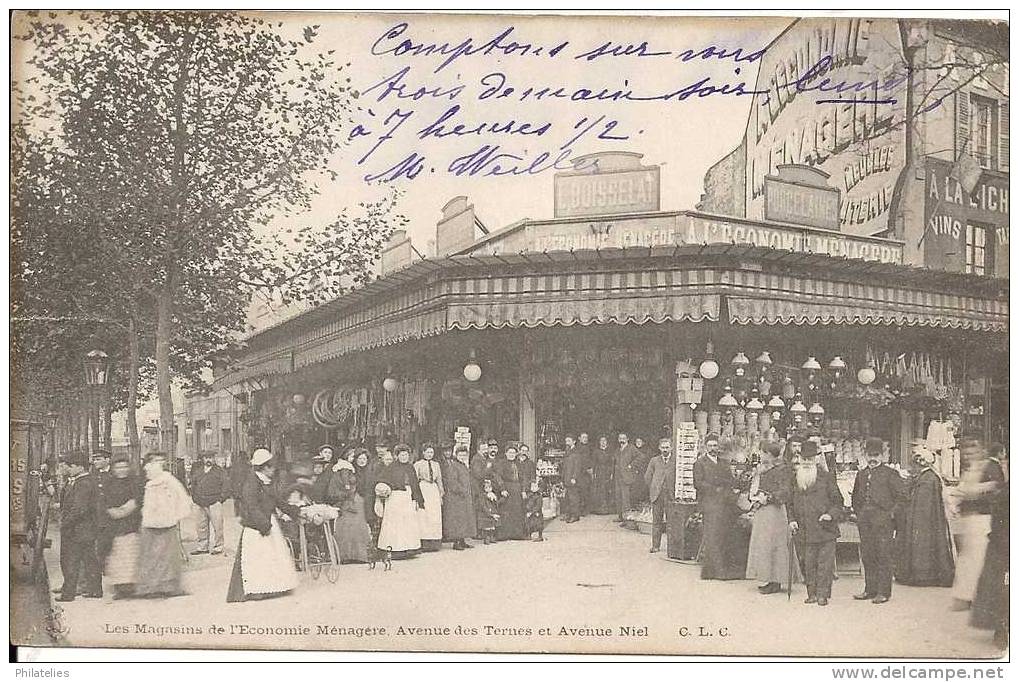 Comptons sur vous
trois demain soir, lundi
à 7 heures 1/2.
M. Weiller
L. BOISSELAT
A L'ECONOMIE
MÉNAGÈRE
MEUBLES
LITERIE
PORCELAINES
A LA LICH
VINS
L'ECONOMIE MENAGERE A L'ECONOMIE MENAGERE
Les Magasins de l'Economie Ménagère, Avenue des Ternes et Avenue Niel C. L. C.
Philatelies
www.delcampe.net